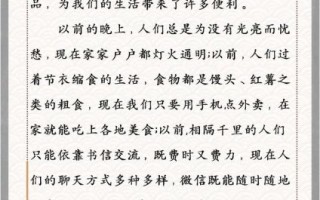 品，为我们的生活带来了许多便利。
以前的晚上，人们总是为没有光亮而忧
愁，现在家家户户都灯火通明;以前，人们过
着节衣缩食的生活，食物都是馒头、红薯之
类的粗食，现在我们只要用手机点外卖，在
家就能吃上各地美食;以前,相隔千里的人们
只能依靠书信交流，既费时又费力，现在人
们的聊天方式多种多样，微信既能随时随地